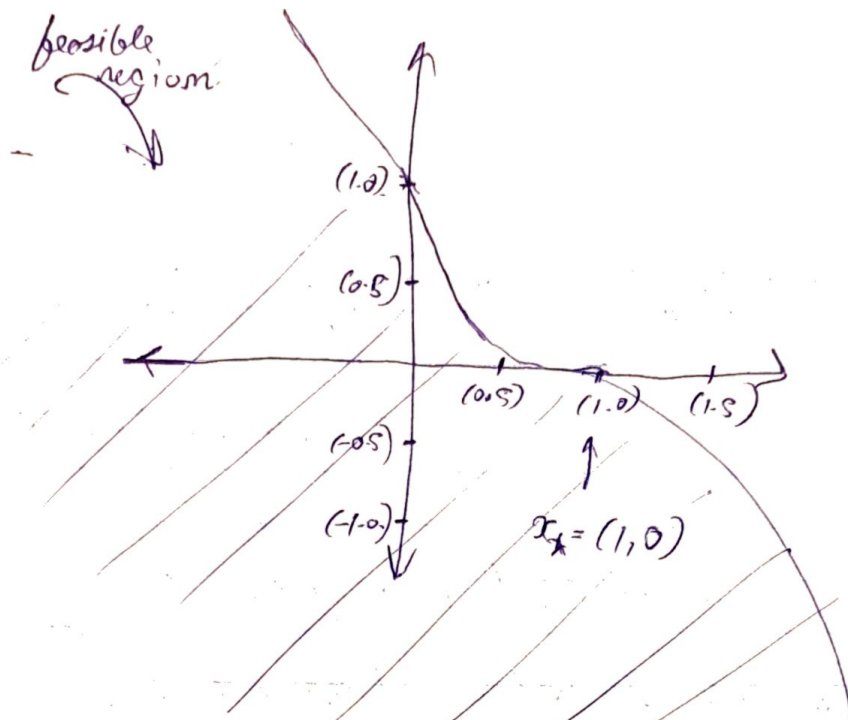 feasible
region
(1.0)
(0.5)
(0.5)
(1.0)
(1.5)
(-0.5)
(-1.0)
x⋆ = (1,0)